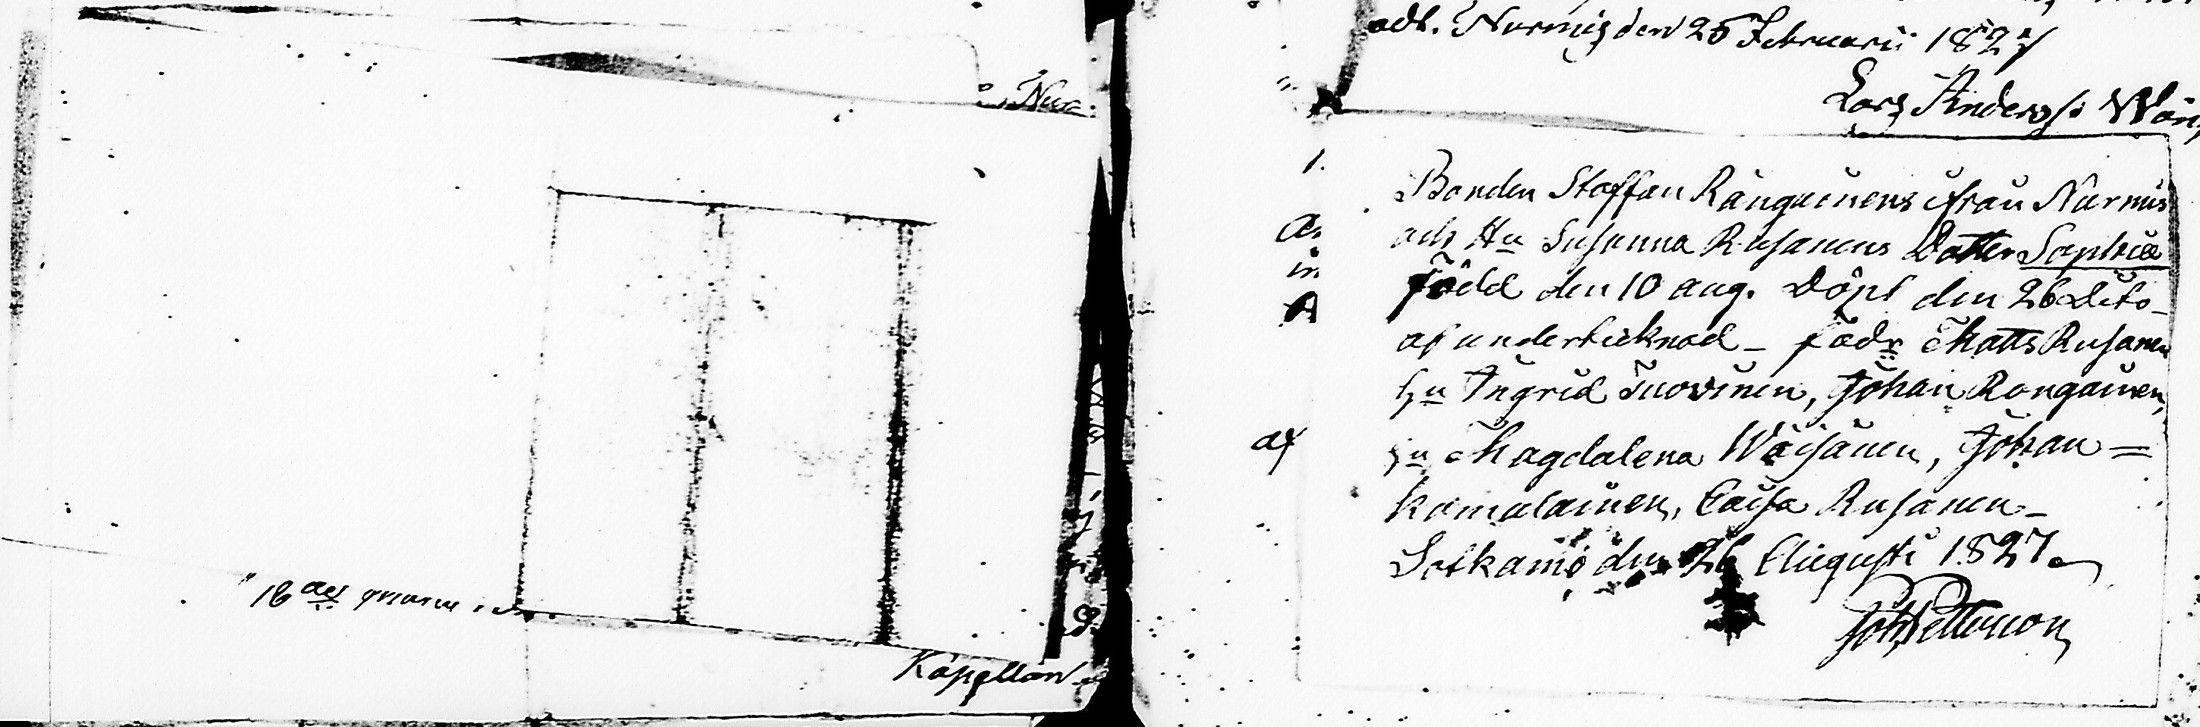 Nur
18 
Kapellan
adt. Nurmis den 25 Februarii 1827
Lars Anders
Bonden Staffan Rångainens ifrån Nurmis
och Hu Susanna Rusanens Dotter Sophia
född den 10 aug. döpt den 26 dito
af undertecknad – fadr Matts Rusanen
hu Ingrid Tuovinen, Johan Rongainen,
hu Magdalena Wäisänen, Johan =
komulainen, Caisa Rusanen –
Sotkamo den 26 Augusti 1827
Joh Pettersson
1.
in
A
af